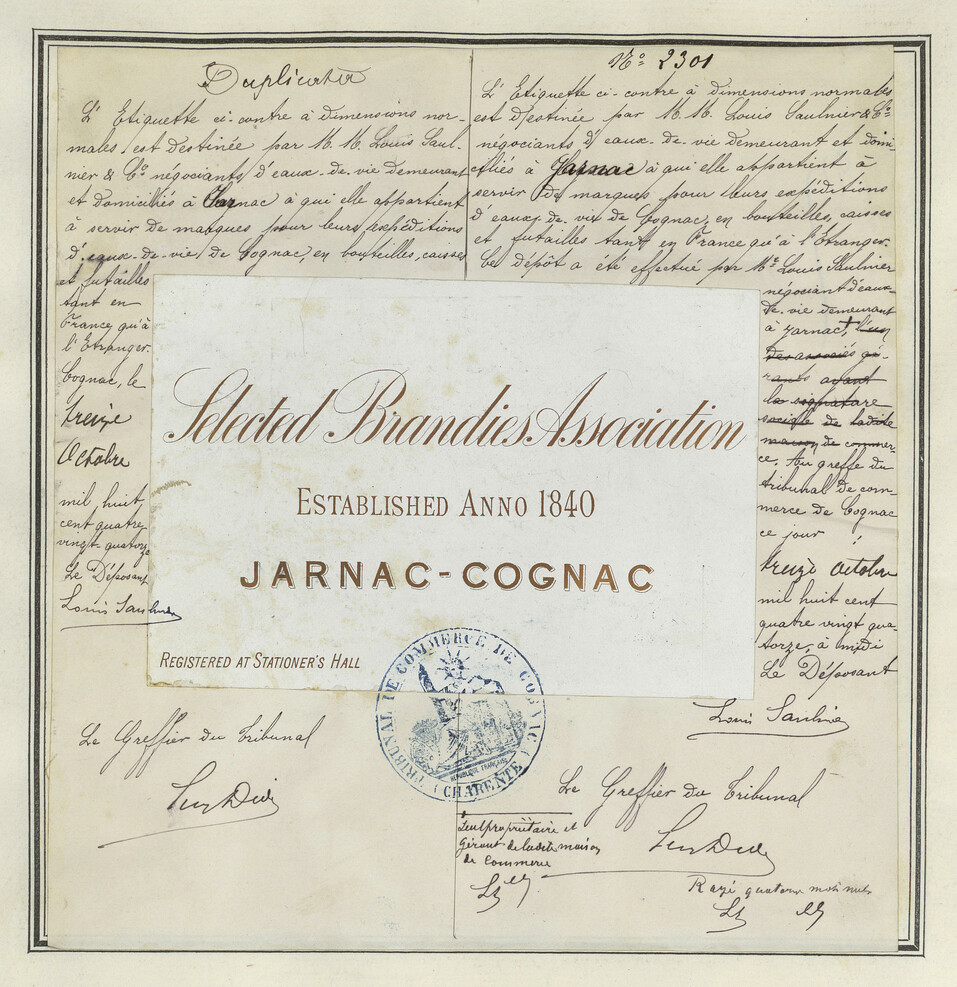 Duplicata
L'Etiquette ci-contre à dimensions nor-
males est destinée par M. M. Louis Saul-
nier & Cº négociants d'eaux-de-vie demeurant
et domiciliés à Jarnac à qui elle appartient
à servir de marques pour leurs expéditions
d'eaux-de-vie de Cognac, en bouteilles, caisses
et futailles
tant en
France qu'à
l'Etranger.
Cognac, le
treize
Octobre
mil huit
cent quatre
vingt-quatorze
Le Déposant
Louis Saulnier
Le Greffier du Tribunal
Nº 2301
L'Etiquette ci-contre à dimensions normales
est destinée par M. M. Louis Saulnier & Cº
négociants d'eaux-de-vie demeurant et domi-
ciliés à Jarnac à qui elle appartient à
servir de marques pour leurs expéditions
d'eaux-de-vie de Cognac, en bouteilles, caisses
et futailles tant en France qu'à l'Etranger.
Ce dépôt a été effectué par Mr Louis Saulnier
négociant d'eaux-
de-vie demeurant
à Jarnac, l'un
des associés gé-
rants ayant
la signature
sociale de ladite
maison de commer-
ce. Au greffe du
tribunal de com-
merce de Cognac
ce jour
treize Octobre
mil huit cent
quatre vingt qua-
torze, à midi
Le Déposant
Louis Saulnier
Le Greffier du Tribunal
Seul propriétaire et
Gérant de ladite maison
de Commerce
Rayé quatorze mots nuls
Selected Brandies Association
ESTABLISHED ANNO 1840
JARNAC-COGNAC
REGISTERED AT STATIONER'S HALL
TRIBUNAL DE COMMERCE DE COGNAC
RÉPUBLIQUE FRANÇAISE
(CHARENTE)